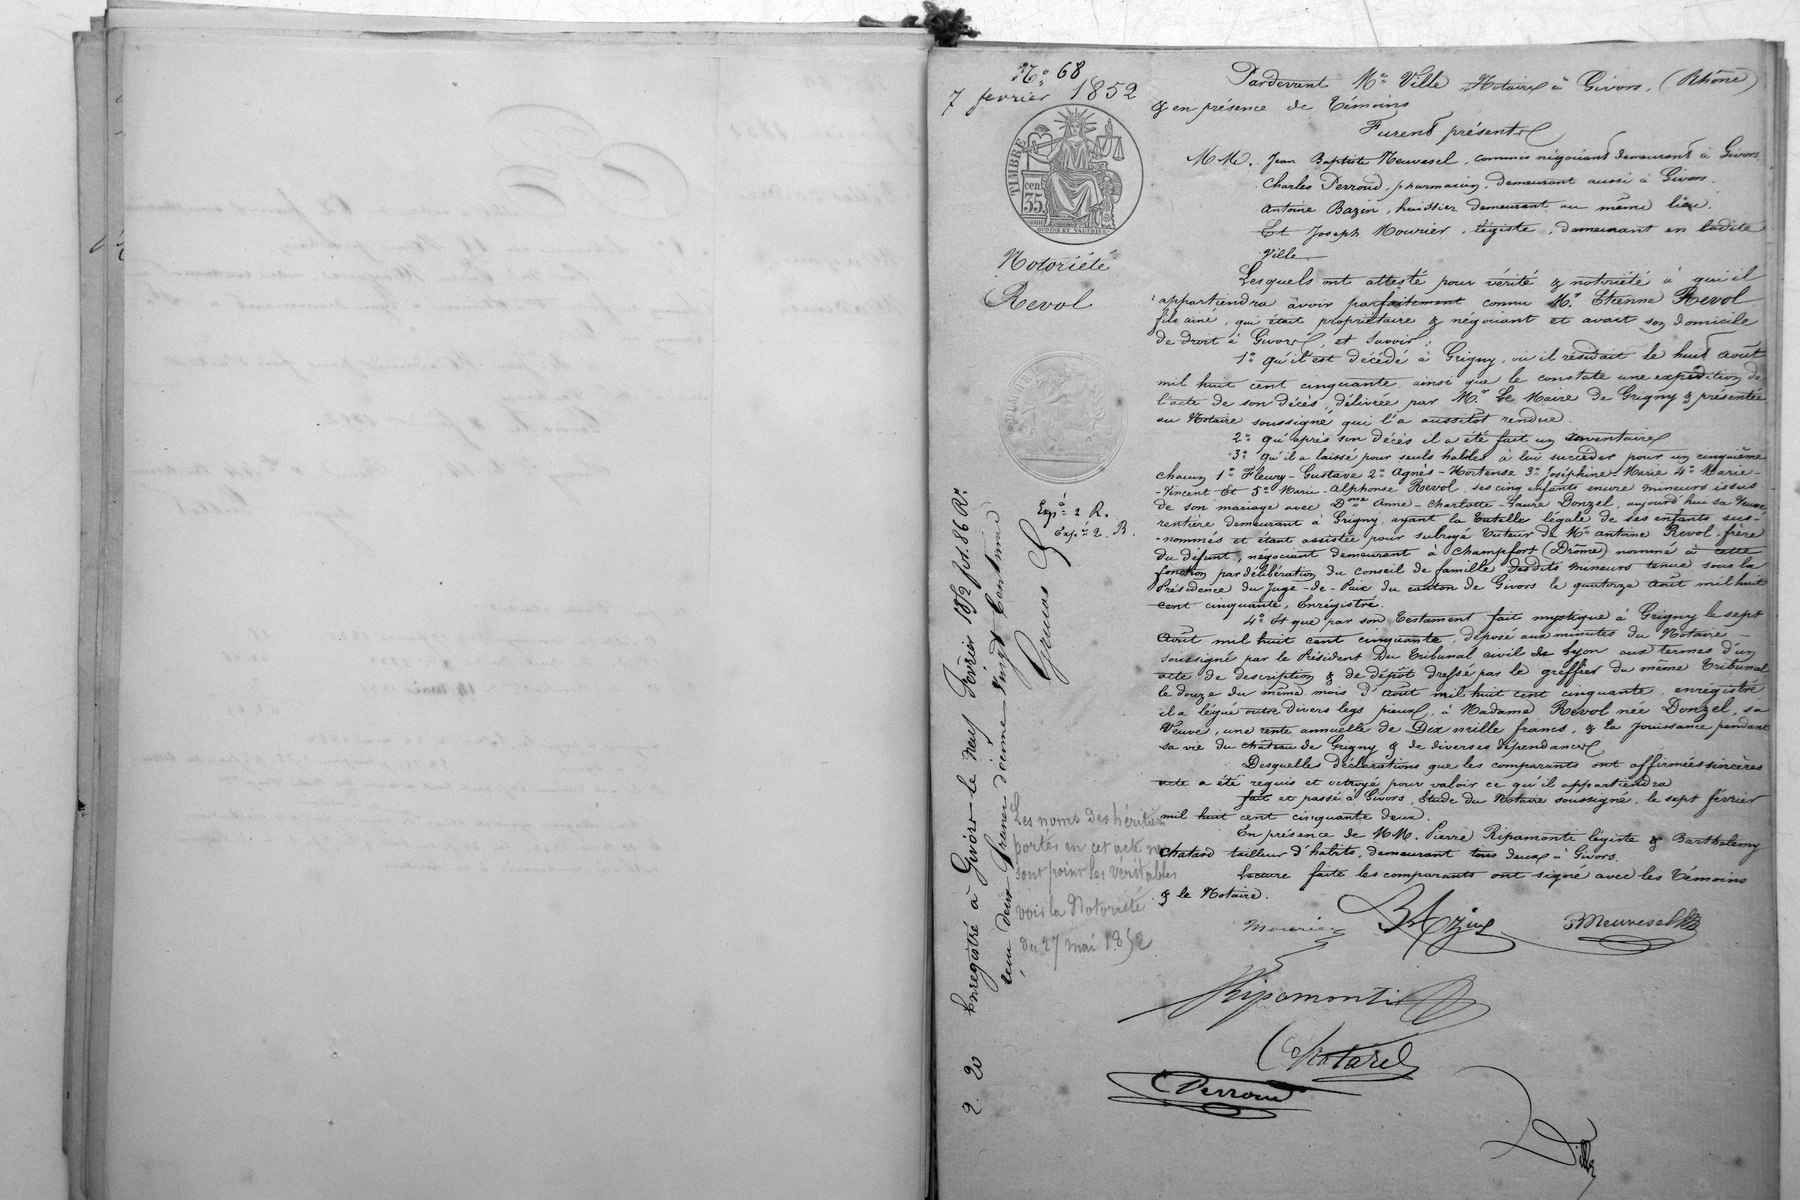 No 68
7 février 1852
TIMBRE
35 cen.
OUDINE ET VAUTHIER
Notoriété
Revol
Expé 2 R.
Exp. on 2. R.
Pardevant Me Ville Notaire à Givors, (Rhône)
& en présence de témoins
Furent présents
MM. Jean Baptiste Neuvesel, commis négociant demeurant à Givors,
Charles Perroud, pharmacien, demeurant aussi à Givors.
Antoine Bazin, huissier demeurant au même lieu.
Et Joseph Mourier, légiste, demeurant en ladite
Ville.
Lesquels ont attesté pour vérité & notoriété à qui il
appartiendra avoir parfaitement connu Mr. Etienne Revol
fils ainé, qui était propriétaire & négociant et avait son domicile
de droit à Givors, et savoir:
1o qu'il est décédé à Grigny, où il résidait le huit août
mil huit cent cinquante, ainsi que le constate une expédition de
l'acte de son décès, délivrée par Mr. Le Maire de Grigny & présentée
au Notaire soussigné qui l'a aussitôt rendue.
2o qu'après son décès il a été fait un inventaire
3o qu'il a laissé pour seuls habiles à lui succéder pour un cinquième
chacun 1o Fleury-Gustave 2o Agnès-Hortense 3o Joséphine Marie 4o Marie-
-Vincent Et 5o Marie-Alphonse Revol, ses cinq enfants encore mineurs issus
de son mariage avec Dme Anne-Charlotte-Laure Donzel, aujourd'hui sa Veuve,
rentière demeurant à Grigny, ayant la tutelle légale de ses enfants sus-
-nommés et étant assistée pour subrogé tuteur de Mr Antoine Revol, frère
du défunt, négociant demeurant à Champfort (Drôme) nommé à cette
fonction par délibération du conseil de famille desdits mineurs tenue sous la
Présidence du Juge-de-Paix du canton de Givors le quatorze août mil huit
cent cinquante, Enregistré.
4o Et que par son testament fait mystique à Grigny le sept
Août mil huit cent cinquante, déposé aux minutes du Notaire
soussigné par le Président Du Tribunal civil de Lyon aux termes d'un
acte de description & de dépôt dressé par le greffier du même Tribunal
le douze du même mois d'août mil huit cent cinquante, enregistré
il a légué outre divers legs pieux, à Madame Revol née Donzel, sa
Veuve, une rente annuelle de Dix mille francs, & la jouissance pendant
sa vie du château de Grigny & de diverses dépendances
Desquelles déclarations que les comparants ont affirmées sincères
acte a été requis et octroyé pour valoir ce qu'il appartiendra
fait et passé à Givors, Etude du Notaire soussigné, le sept février
mil huit cent cinquante deux.
En présence de MM. Pierre Ripamonti légiste & Barthelemy
Chatard tailleur d'habits, demeurant tous deux à Givors.
Lecture faite les comparants ont signé avec les témoins
& le Notaire.
Mourier BAzin BNeuvesel
Ripamonti
Chatard
CPerroud
Ville
Enregistré à Givors le neuf Février 1852 fol. 86 Ro.
reçu deux francs décime vingt centimes
2. 20
Les noms des héritiers
portés en cet acte ne
sont point les véritables
voir la Notoriété
du 27 mai 1852